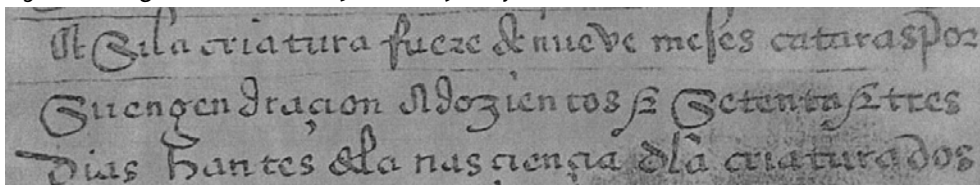 ¶ Si la criatura fuere de nueve meses cataras por
Su engendraçion A dozientos & Setenta & tres
Dias hantes dela nasciençia dela criatura dos